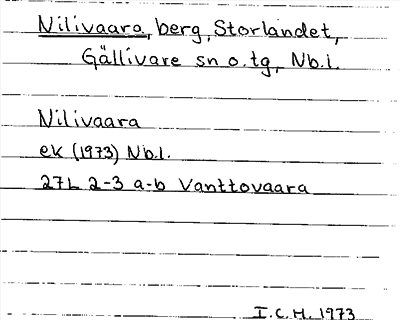 Nilivaara, berg, Storlandet,
Gällivare sn o. tg, Nb. l.
Nilivaara
ek (1973) Nb. l.
27L 2-3 a-b Vanttovaara
I.C.H. 1973